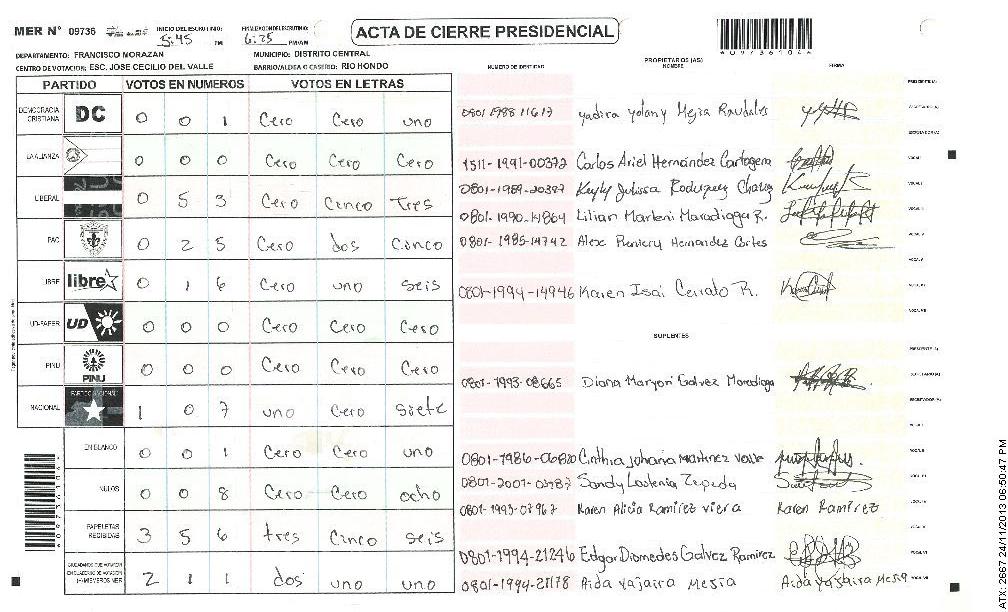 MER Nº 09736 INICIO DEL ESCRUTINIO: 5:45 PM FINALIZACION DEL ESCRUTINIO: 6:25 PM/AM
ACTA DE CIERRE PRESIDENCIAL
DEPARTAMENTO: FRANCISCO MORAZAN MUNICIPIO: DISTRITO CENTRAL
CENTRO DE VOTACION: ESC. JOSE CECILIO DEL VALLE BARRIO/ALDEA O CASERIO: RIO HONDO
NUMERO DE IDENTIDAD PROPIETARIOS (AS) NOMBRE FIRMA
PARTIDO VOTOS EN NUMEROS VOTOS EN LETRAS
DEMOCRACIA CRISTIANA DC 0 0 1 Cero Cero uno
LA ALIANZA 0 0 0 Cero Cero Cero
LIBERAL 0 5 3 Cero Cinco Tres
PAC 0 2 5 Cero dos Cinco
LIBRE libre 0 1 6 Cero uno seis
UD-FAPER UD 0 0 0 Cero Cero Cero
PINU PINU 0 0 0 Cero Cero Cero
NACIONAL PARTIDO NACIONAL 1 0 7 uno Cero siete
EN BLANCO 0 0 1 Cero Cero uno
NULOS 0 0 8 Cero Cero ocho
PAPELETAS RECIBIDAS 3 5 6 tres Cinco seis
CIUDADANOS QUE VOTARON EN CUADERNO DE VOTACION (+) MIEMBROS MER 2 1 1 dos uno uno
0801 1988 11617 Yadira Yolany Mejia Raudales
1511-1991-00372 Carlos Ariel Hernández Cartagena
0801-1989-20387 Keyly Julissa Rodriguez Chavez
0801-1990-14864 Lilian Marleni Maradiaga R.
0801-1985-14742 Alex Reniery Hernandez Cortes
0801-1994-14946 Karen Isai Cerrato R.
SUPLENTES
0801-1993-08665 Diana Maryori Galvez Maradiaga
0801-1986-06820 Cinthia Johania Martinez
0801-2001-05487 Sandy Lastenia Zepeda
0801-1993-07967 Karen Alicia Ramírez Viera Karen Ramírez
0801-1994-21246 Edgar Diomedes Galvez Ramirez
0801-1994-21178 Aida Yajaira Mesia Aida Yajaira Mesia
ATX-2667 24/11/2013 06:50:47 PM